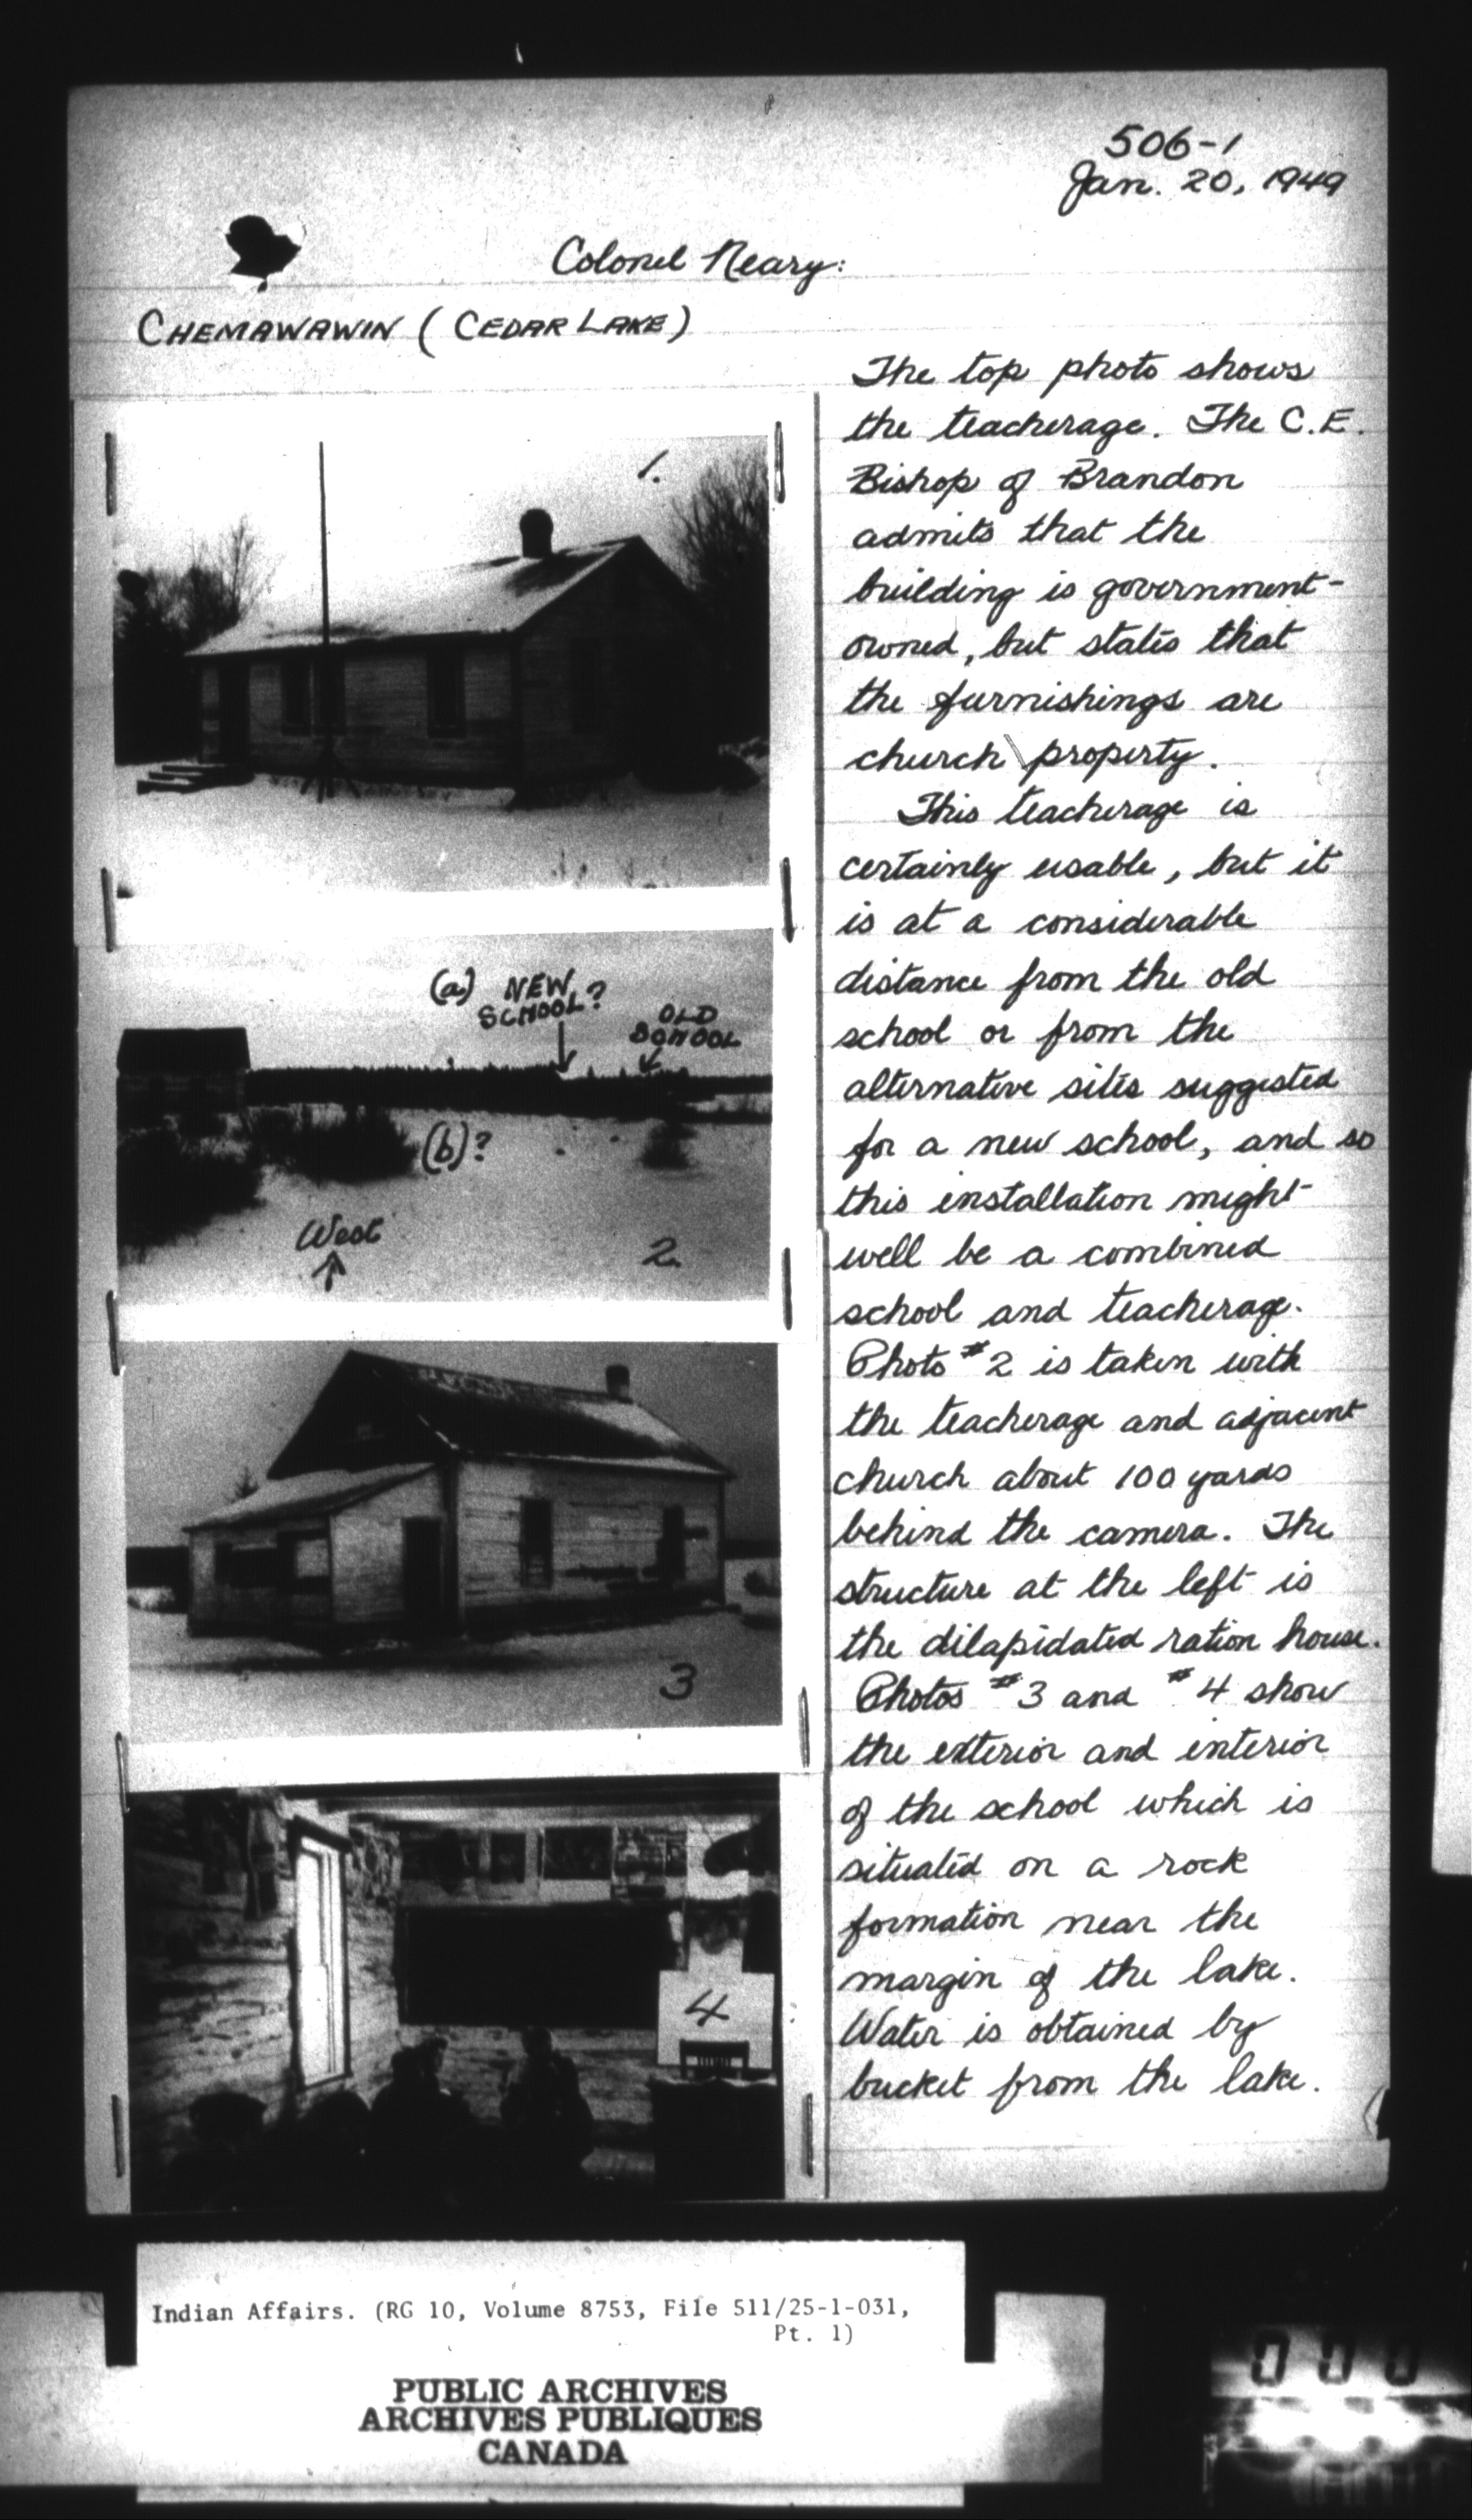 506-1
Jan. 20, 1949
Colonel Neary:
CHEMAWAWIN (CEDAR LAKE)
1.
(a) NEW
SCHOOL?
OLD
SCHOOL
(b)?
West
2
3
4
The top photo shows
the teacherage. The C.E.
Bishop of Brandon
admits that the
building is government-
owned, but states that
the furnishings are
church property.
This teacherage is
certainly usable, but it
is at a considerable
distance from the old
school or from the
alternative sites suggested
for a new school, and so
this installation might
well be a combined
school and teacherage.
Photo #2 is taken with
the teacherage and adjacent
church about 100 yards
behind the camera. The
structure at the left is
the dilapidated ration house.
Photos #3 and #4 show
the exterior and interior
of the school which is
situated on a rock
formation near the
margin of the lake.
Water is obtained by
bucket from the lake.
Indian Affairs. (RG 10, Volume 8753, File 511/25-1-031,
Pt. 1)
PUBLIC ARCHIVES
ARCHIVES PUBLIQUES
CANADA
000